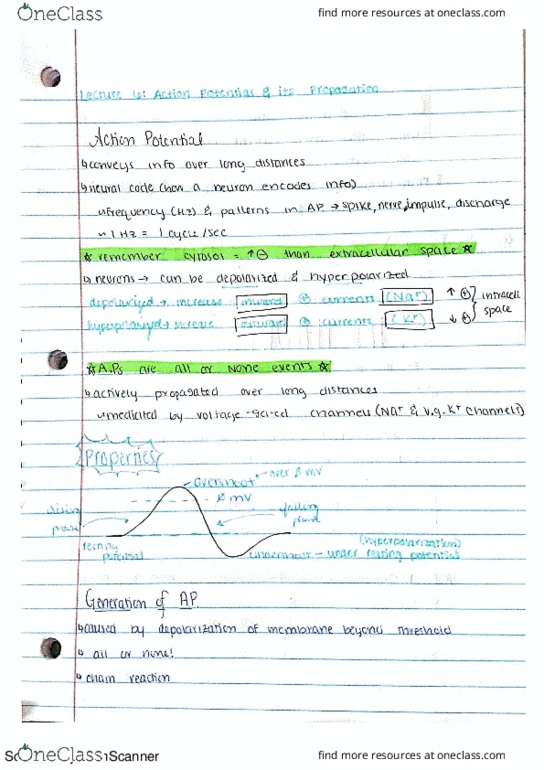 OneClass
find more resources at oneclass.com
Lecture 6: Action Potential & its Propagation
Action Potential
↳ conveys info over long distances
↳ neural code (how a neuron encodes info)
↳ frequency (Hz) & patterns in AP → spike, nerve impulse, discharge
↳ 1 Hz = 1 cycle/sec
☆ remember cytosol = ↑⊖ than extracellular space ☆
↳ neurons → can be depolarized & hyperpolarized
depolarized → increase inward ⊕ currents (Na⁺) ↑ ⊕
hyperpolarized → increase outward ⊕ currents (K⁺) ↓ ⊕
intracell space
☆ A.Ps are all or none events ☆
↳ actively propagated over long distances
↳ mediated by voltage-gated channels (Na⁺ & v.g. K⁺ channels)
Properties
overshoot - over ∅ mv
∅ mv
rising phase
falling phase
resting potential
(hyperpolarization)
undershoot - under resting potential
Generation of AP
↳ caused by depolarization of membrane beyond threshold
↳ all or none!
↳ chain reaction
OneClass
Scanner
find more resources at oneclass.com